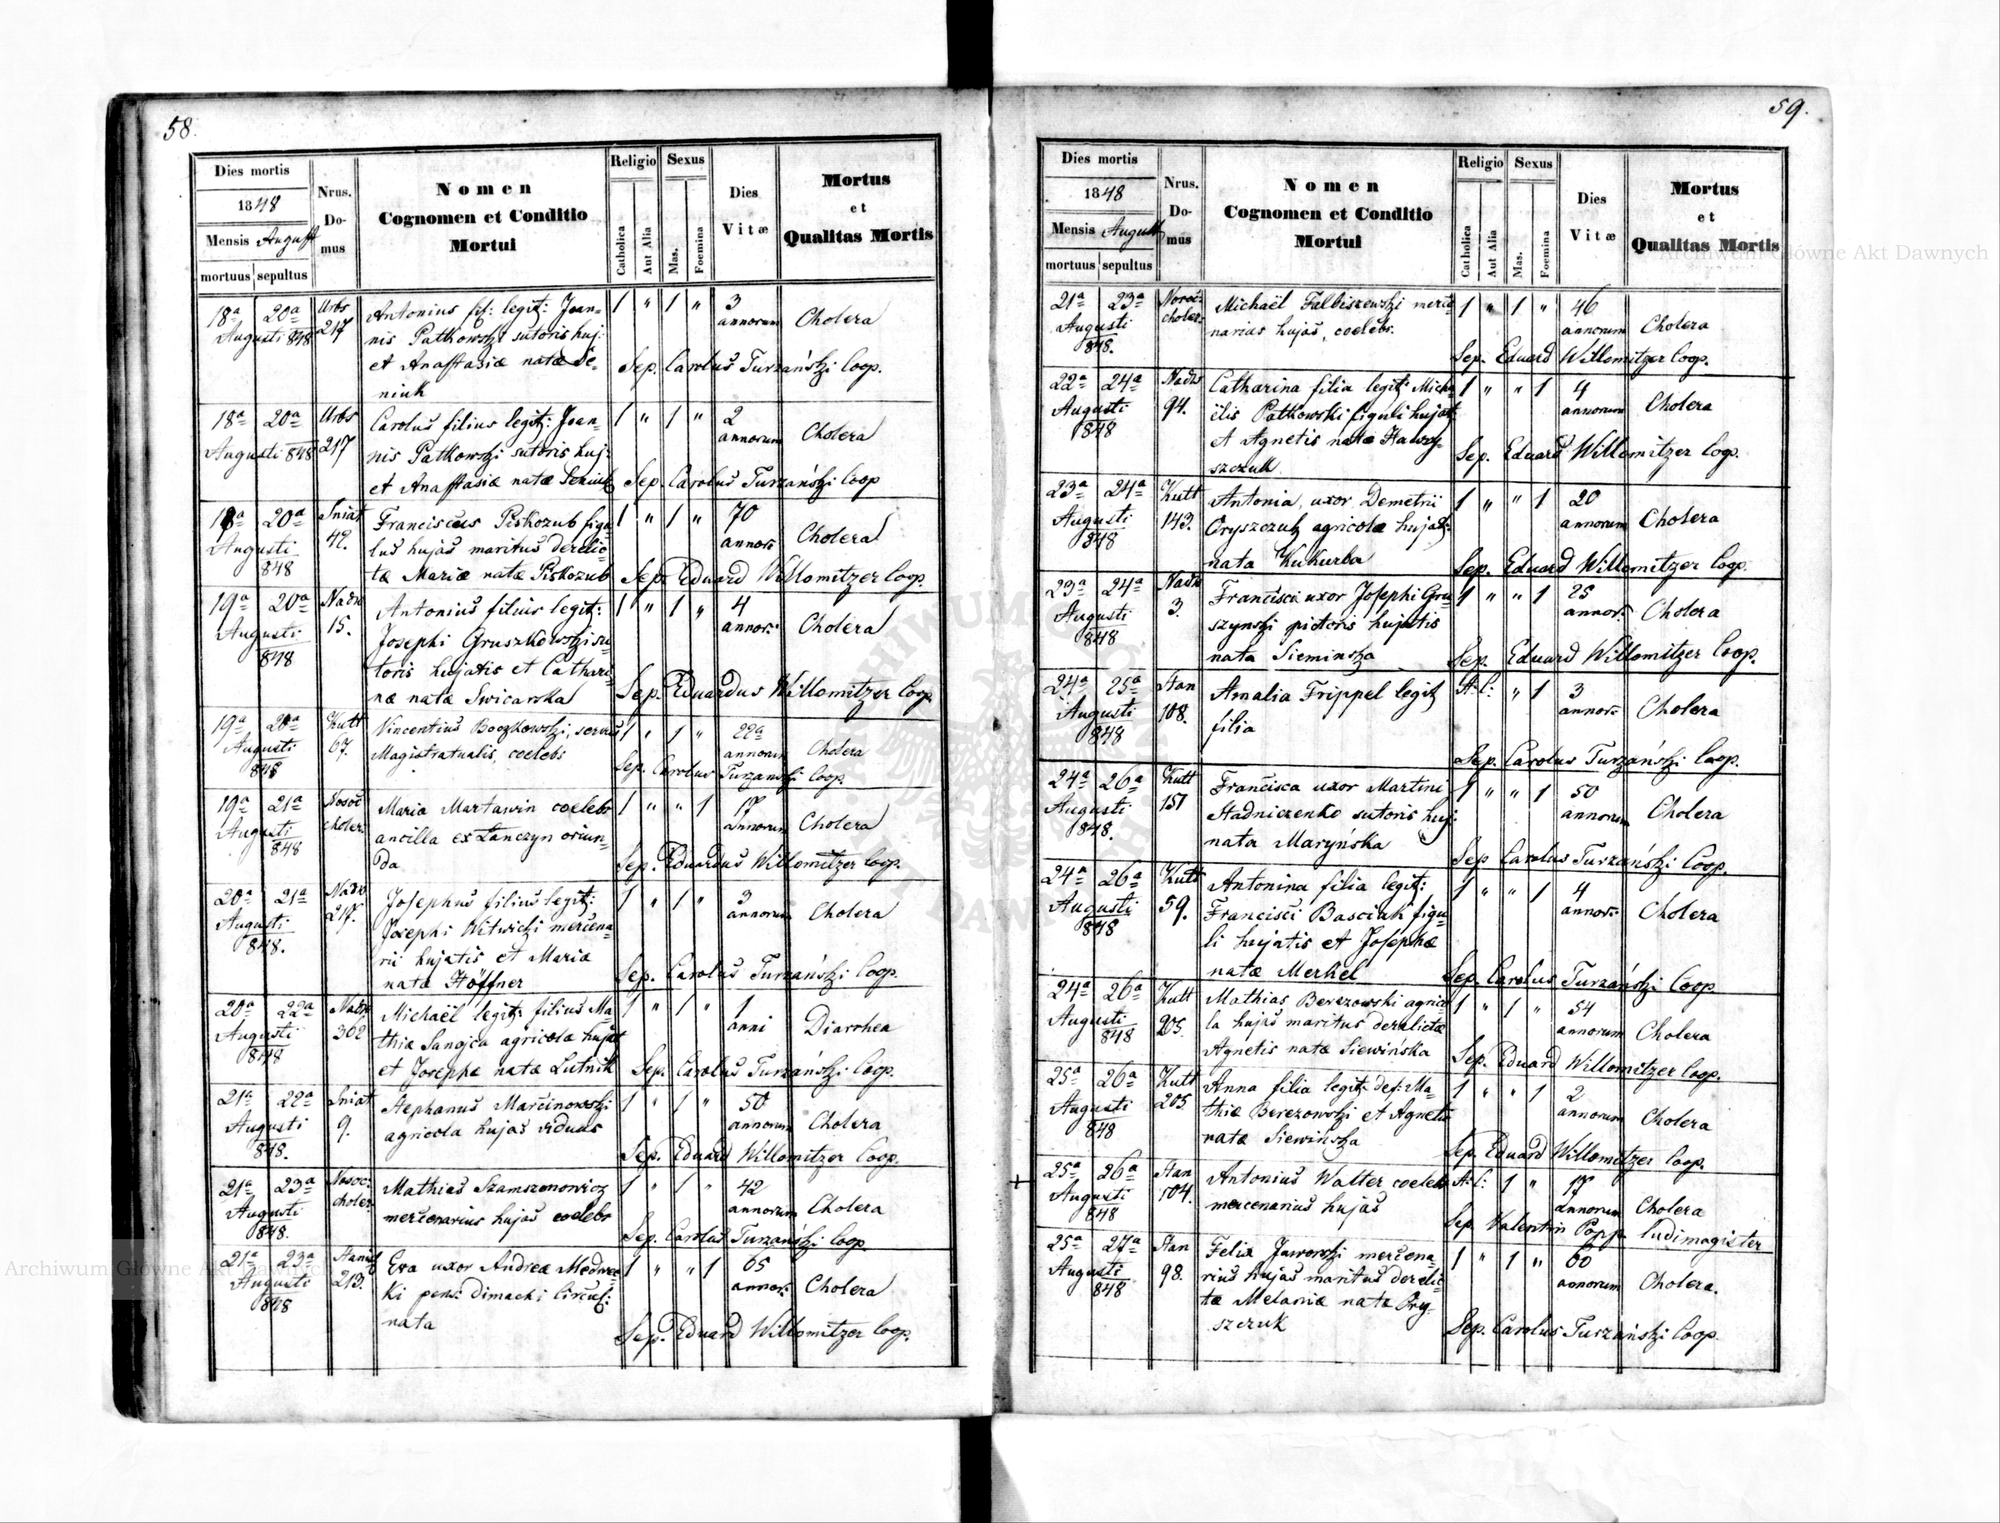 58.
Dies mortis
1848
Mensis August
mortuus sepultus
Nrus.
Do-
mus
Nomen
Cognomen et Conditio
Mortui
Religio
Catholica
Aut Alia
Sexus
Mas.
Foemina
Dies
Vitæ
Mortus
et
Qualitas Mortis
18a 20a Urbs Antonius fil: legit: Joan- 1 " 1 " 3
Augusti 848 217 nis Patkowski sutoris huj: annorum Cholera
et Anastasiæ natæ Se- Sep. Carolus Turzański Coop.
niuk
18a 20a Urbs Carolus filius legit: Joan- 1 " 1 " 2
Augusti 848 217 nis Patkowski sutoris huj: annorum Cholera
et Anastasiæ natæ Seniuk Sep. Carolus Turzański Coop
18a 20a Sniat Franciscus Piskozub figu- 1 " 1 " 70
Augusti 42. lus hujas maritus derelic- annor: Cholera
848 tæ Mariæ natæ Piskozub Sep. Eduard Willomitzer Coop.
19a 20a Nadw Antonius filius legit: 1 " 1 " 4
Augusti 15. Josephi Gruszkowski su- annor: Cholera
848 toris hujatis et Cathari-
næ natæ Swicarska Sep. Eduardus Willomitzer Coop
19a 20a Kutt Vincentius Boczkowski, servus 1 " 1 " 22a
Augusti 67. Magistratualis, coelebs annorum Cholera
848 Sep. Carolus Turzanski Coop.
19a 21a Nosoc Maria Martawin coelebs 1 " " 1 17
Augusti choler: ancilla ex Lanczyn oriun- annorum Cholera
848 da Sep. Eduardus Willomitzer Coop.
20a 21a Nadw Josephus filius legit: 1 " 1 " 3
Augusti 217. Josephi Witwicki mercena- annorum Cholera
848. rii hujatis et Maria
nata Höffner Sep. Carolus Turzański Coop.
20a 22a Nadw Michaël legit: filius Ma- 1 " 1 " 1
Augusti 302 thiæ Sanojca agricolæ hujat anni Diarrhea
848 et Josephæ natæ Lutnik Sep. Carolus Turzański Coop.
21a 22a Sniat Stephanus Marcinowski 1 " 1 " 50
Augusti 9. agricola hujas viduus annorum Cholera
848. Sep. Eduard Willomitzer Coop.
21a 23a Nosoc: Mathias Szamszonowicz 1 " 1 " 42
Augusti choler: mercenarius hujas coelebs annorum Cholera
848. Sep. Carolus Turzański Coop.
21a 23a Stanisl Eva uxor Andreæ 1 " " 1 65
Augusti 213. ki pens: dimacki circul: annor: Cholera
848 nata Sep. Eduard Willomitzer Coop.
59.
Dies mortis
1848
Mensis August
mortuus sepultus
Nrus.
Do-
mus
Nomen
Cognomen et Conditio
Mortui
Religio
Catholica
Aut Alia
Sexus
Mas.
Foemina
Dies
Vitæ
Mortus
et
Qualitas Mortis
21a 23a Nosoc: Michaël Falbiszewski merce- 1 " 1 " 46
Augusti choler: narius hujas, coelebs. annorum Cholera
848. Sep. Eduard Willomitzer Coop.
22a 24a Nadw Catharina filia legit: Micha- 1 " " 1 4
Augusti 94. ëlis Patkowski figuli hujat: annorum Cholera
848 et Agnetis natæ Hawry- Sep. Eduard Willomitzer Coop.
szczuk
23a 24a Kutt Antonia uxor Demetrii 1 " " 1 20
Augusti 143. Oryszczuk agricolæ hujat: annorum Cholera
848 nata Kukurba Sep. Eduard Willomitzer Coop.
23a 24a Nadw Francisca uxor Josephi Gru- 1 " " 1 25
Augusti 3. szynski pictoris hujatis annor: Cholera
848 nata Sieminska Sep. Eduard Willomitzer Coop.
24a 25a Stan Amalia Frippel legit A: C: " 1 3
Augusti 108. filia annor: Cholera
848 Sep. Carolus Turzański Coop.
24a 26a Kutt Francisca uxor Martini 1 " " 1 50
Augusti 151 Stadniczenko sutoris huj: annorum Cholera
848. nata Maryńska Sep Carolus Turzański Coop.
24a 26a Kutt Antonina filia legit: 1 " " 1 4
Augusti 59. Francisci Basciak figu- annor: Cholera
848 li hujatis et Josephæ
natæ Merkel Sep. Carolus Turzański Coop.
24a 26a Kutt Mathias Berezowski agrico- 1 " 1 " 54
Augusti 205. la hujas maritus derelictæ annorum Cholera
848 Agnetis natæ Siewińska Sep. Eduard Willomitzer Coop.
25a 26a Kutt Anna filia legit: def: Ma- 1 " " 1 2
Augusti 205. thiæ Berezowski et Agnetis annorum Cholera
848 natæ Siewińska Sep. Eduard Willomitzer Coop.
25a 26a Stan Antonius Walter coelebs A: C: 1 " 17
Augusti 104. mercenarius hujas annorum Cholera
848 Sep. Valentin Popp ludimagister
25a 27a Stan Felix Jaworski mercena- 1 " 1 " 60
Augusti 98. rius hujas maritus derelic- annorum Cholera.
848 tæ Melaniæ natæ Ory-
szczuk Sep. Carolus Turzański Coop.
Archiwum Główne Akt Dawnych
Archiwum Główne Akt Dawnych